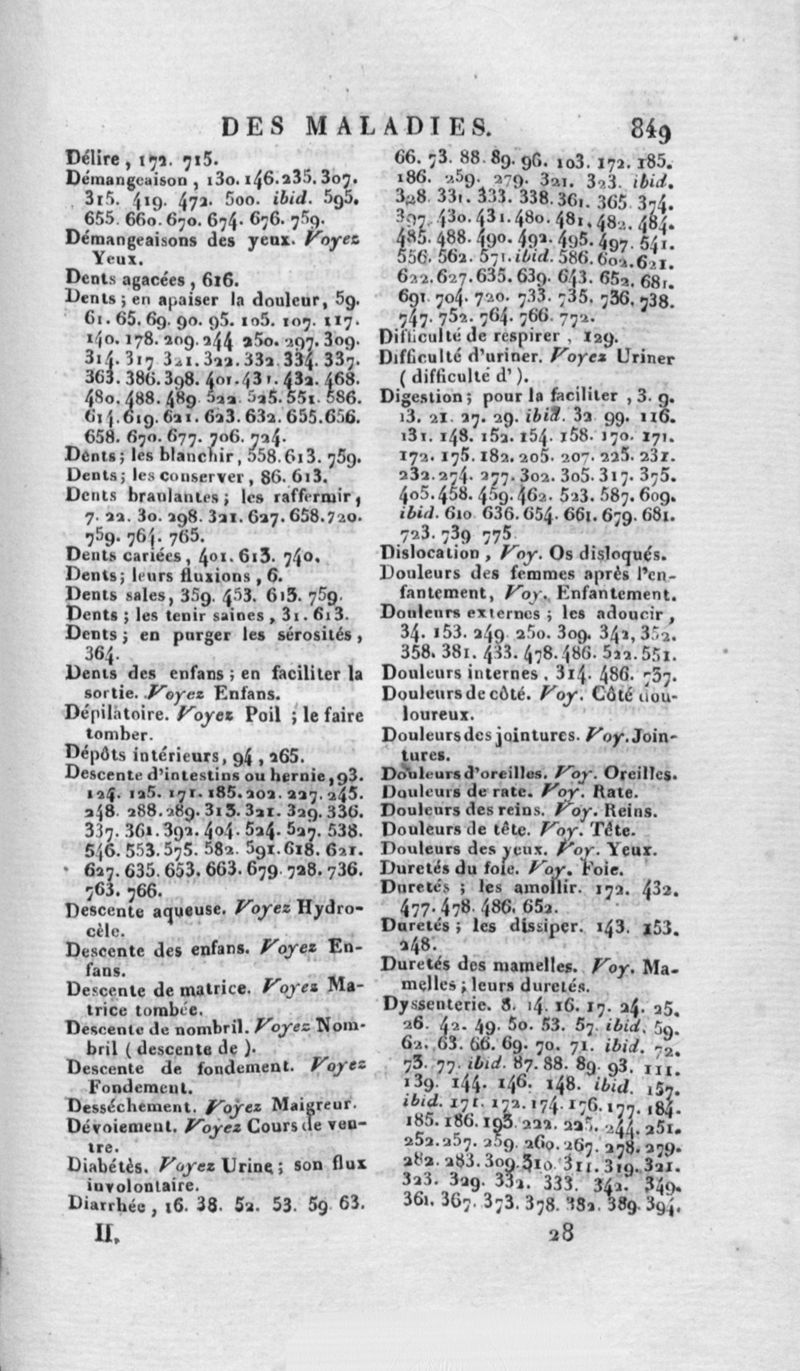 DES MALADIES. 849
Délire, 172. 715.
Démangeaison, 130. 146. 235. 307.
315. 419. 472. 500. ibid. 595.
655. 660. 670. 674. 676. 759.
Démangeaisons des yeux. Voyez
Yeux.
Dents agacées, 616.
Dents; en apaiser la douleur, 59.
61. 65. 69. 90. 95. 105. 107. 117.
140. 178. 209. 244 250. 297. 309.
314. 317 321. 322. 332 334. 337.
363. 386. 398. 401. 431. 432. 468.
480. 488. 489 522 525. 551. 586.
614. 619. 621. 623. 632. 655. 656.
658. 670. 677. 706. 724.
Dents; les blanchir, 558. 613. 759.
Dents; les conserver, 86. 613.
Dents branlantes; les raffermir,
7. 22. 30. 298. 321. 627. 658. 720.
759. 764. 765.
Dents cariées, 401. 613. 740.
Dents; leurs fluxions, 6.
Dents sales, 359. 453. 613. 759.
Dents; les tenir saines, 31. 613.
Dents; en purger les sérosités,
364.
Dents des enfans; en faciliter la
sortie. Voyez Enfans.
Dépilatoire. Voyez Poil; le faire
tomber.
Dépôts intérieurs, 94, 265.
Descente d'intestins ou hernie, 93.
124. 125. 171. 185. 202. 227. 245.
248 288. 289. 313. 321. 329. 336.
337. 361. 392. 404. 524. 527. 538.
546. 553. 575. 582 591. 618. 621.
627. 635. 653. 663. 679. 728. 736.
763. 766.
Descente aqueuse. Voyez Hydro-
cèle.
Descente des enfans. Voyez En-
fans.
Descente de matrice. Voyez Ma-
trice tombée.
Descente de nombril. Voyez Nom-
bril (descente de).
Descente de fondement. Voyez
Fondement.
Desséchement. Voyez Maigreur.
Dévoiement. Voyez Cours de ven-
tre.
Diabétès. Voyez Urine; son flux
involontaire.
Diarrhée, 16. 38. 52. 53. 59 63.
66. 73. 88. 89. 96. 103. 172. 185.
186. 259. 279. 321. 323. ibid.
328. 331. 333. 338. 361. 365 374.
397. 430. 431. 480. 481. 482. 484.
485. 488. 490. 492. 495. 497. 541.
556. 562. 571. ibid. 586. 602. 621.
622. 627. 635. 639. 643. 652. 681.
691 704. 720. 733. 735. 736. 738.
747. 752. 764. 766. 772.
Difficulté de respirer, 129.
Difficulté d'uriner. Voyez Uriner
(difficulté d').
Digestion; pour la faciliter, 3. 9.
13. 21. 27. 29. ibid. 32 99. 116.
131. 148. 152. 154. 158. 170. 171.
172. 175. 182. 205. 207. 225. 231.
232. 274. 277. 302. 305. 317. 375.
405. 458. 459. 462. 523. 587. 609.
ibid. 610 636. 654. 661. 679. 681.
723. 739 775
Dislocation, Voy. Os disloqués.
Douleurs des femmes après l'en-
fantement, Voy. Enfantement.
Douleurs externes; les adoucir,
34. 153. 249 250. 309. 342, 352.
358. 381. 433. 478. 486. 522. 551.
Douleurs internes. 314. 486. 737.
Douleurs de côté. Voy. Côté dou-
loureux.
Douleurs des jointures. Voy. Join-
tures.
Douleurs d'oreilles. Voy. Oreilles.
Douleurs de rate. Voy. Rate.
Douleurs des reins. Voy. Reins.
Douleurs de tête. Voy. Tête.
Douleurs des yeux. Voy. Yeux.
Duretés du foie. Voy. Foie.
Duretés; les amollir. 172. 432.
477. 478. 486. 652.
Duretés; les dissiper. 143. 153.
248.
Duretés des mamelles. Voy. Ma-
melles; leurs duretés.
Dyssenterie. 8. 14. 16. 17. 24. 25.
26. 42. 49. 50. 53. 57. ibid. 59.
62. 63. 66. 69. 70. 71. ibid. 72.
73. 77. ibid. 87. 88. 89. 93. 111.
139. 144. 146. 148. ibid. 157.
ibid. 171. 172. 174. 176. 177. 184.
185. 186. 193 222. 225. 244. 251.
252. 257. 259 260. 267. 278. 279.
282. 283. 309 310 311. 319. 321.
323. 329. 332. 333. 342. 349.
361. 367. 373. 378. 382. 389. 394.
II. 28